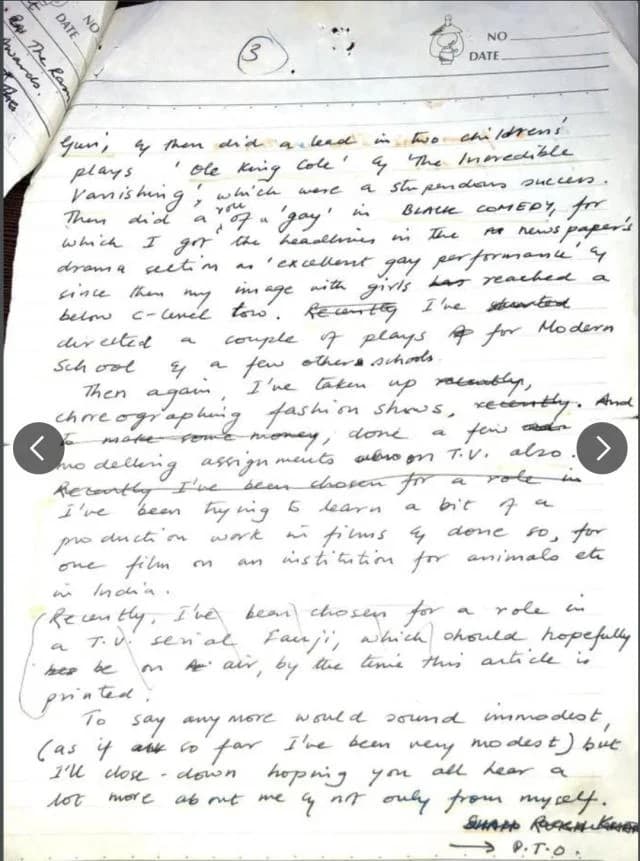 NO
DATE
Rev The Ram
Awards.
NO
DATE
3
Gun', & then did a lead in two childrens'
plays 'Ole King Cole' & 'The Incredible
Vanishing', which were a stupendous success.
Then did a role of a 'gay' in BLACK COMEDY, for
which I got the headlines in the newspaper's
drama section as 'excellent gay performance' &
since then my image with girls has reached a
below C-level low. Recently I've started
directed a couple of plays for Modern
School & a few others schools.
Then again, I've taken up recently,
choreographing fashion shows, recently. And
to make some money, done a few
modelling assignments on T.V. also.
Recently I've been chosen for a role in
I've been trying to learn a bit of a
production work in films & done so, for
one film on an institution for animals etc
in India.
Recently, I've been chosen for a role in
a T.V. serial Fauji, which should hopefully
be on air, by the time this article is
printed.
To say any more would sound immodest,
(as if so far I've been very modest) but
I'll close-down hoping you all hear a
lot more about me & not only from myself.
SHAH RUKH KHAN
→ P.T.O.